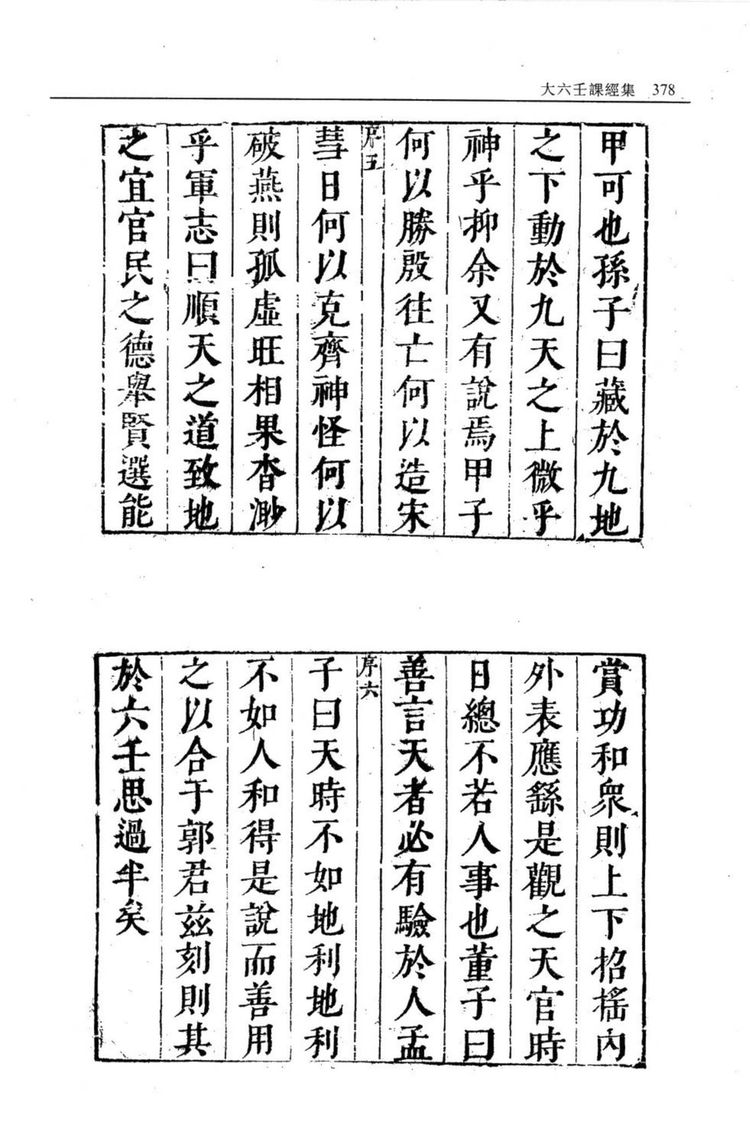 大六壬課經集 378
甲可也孫子曰藏於九地
之下動於九天之上微乎
神乎抑余又有說焉甲子
何以勝殷往亡何以造宋
序五
彗日何以克齊神怪何以
破燕則孤虛旺相果杳渺
乎軍志曰順天之道致地
之宜官民之德舉賢選能
賞功和衆則上下招榣內
外表應繇是觀之天官時
日總不若人事也董子曰
善言天者必有驗於人孟
序六
子曰天時不如地利地利
不如人和得是說而善用
之以合于郭君兹刻則其
於六壬思過半矣